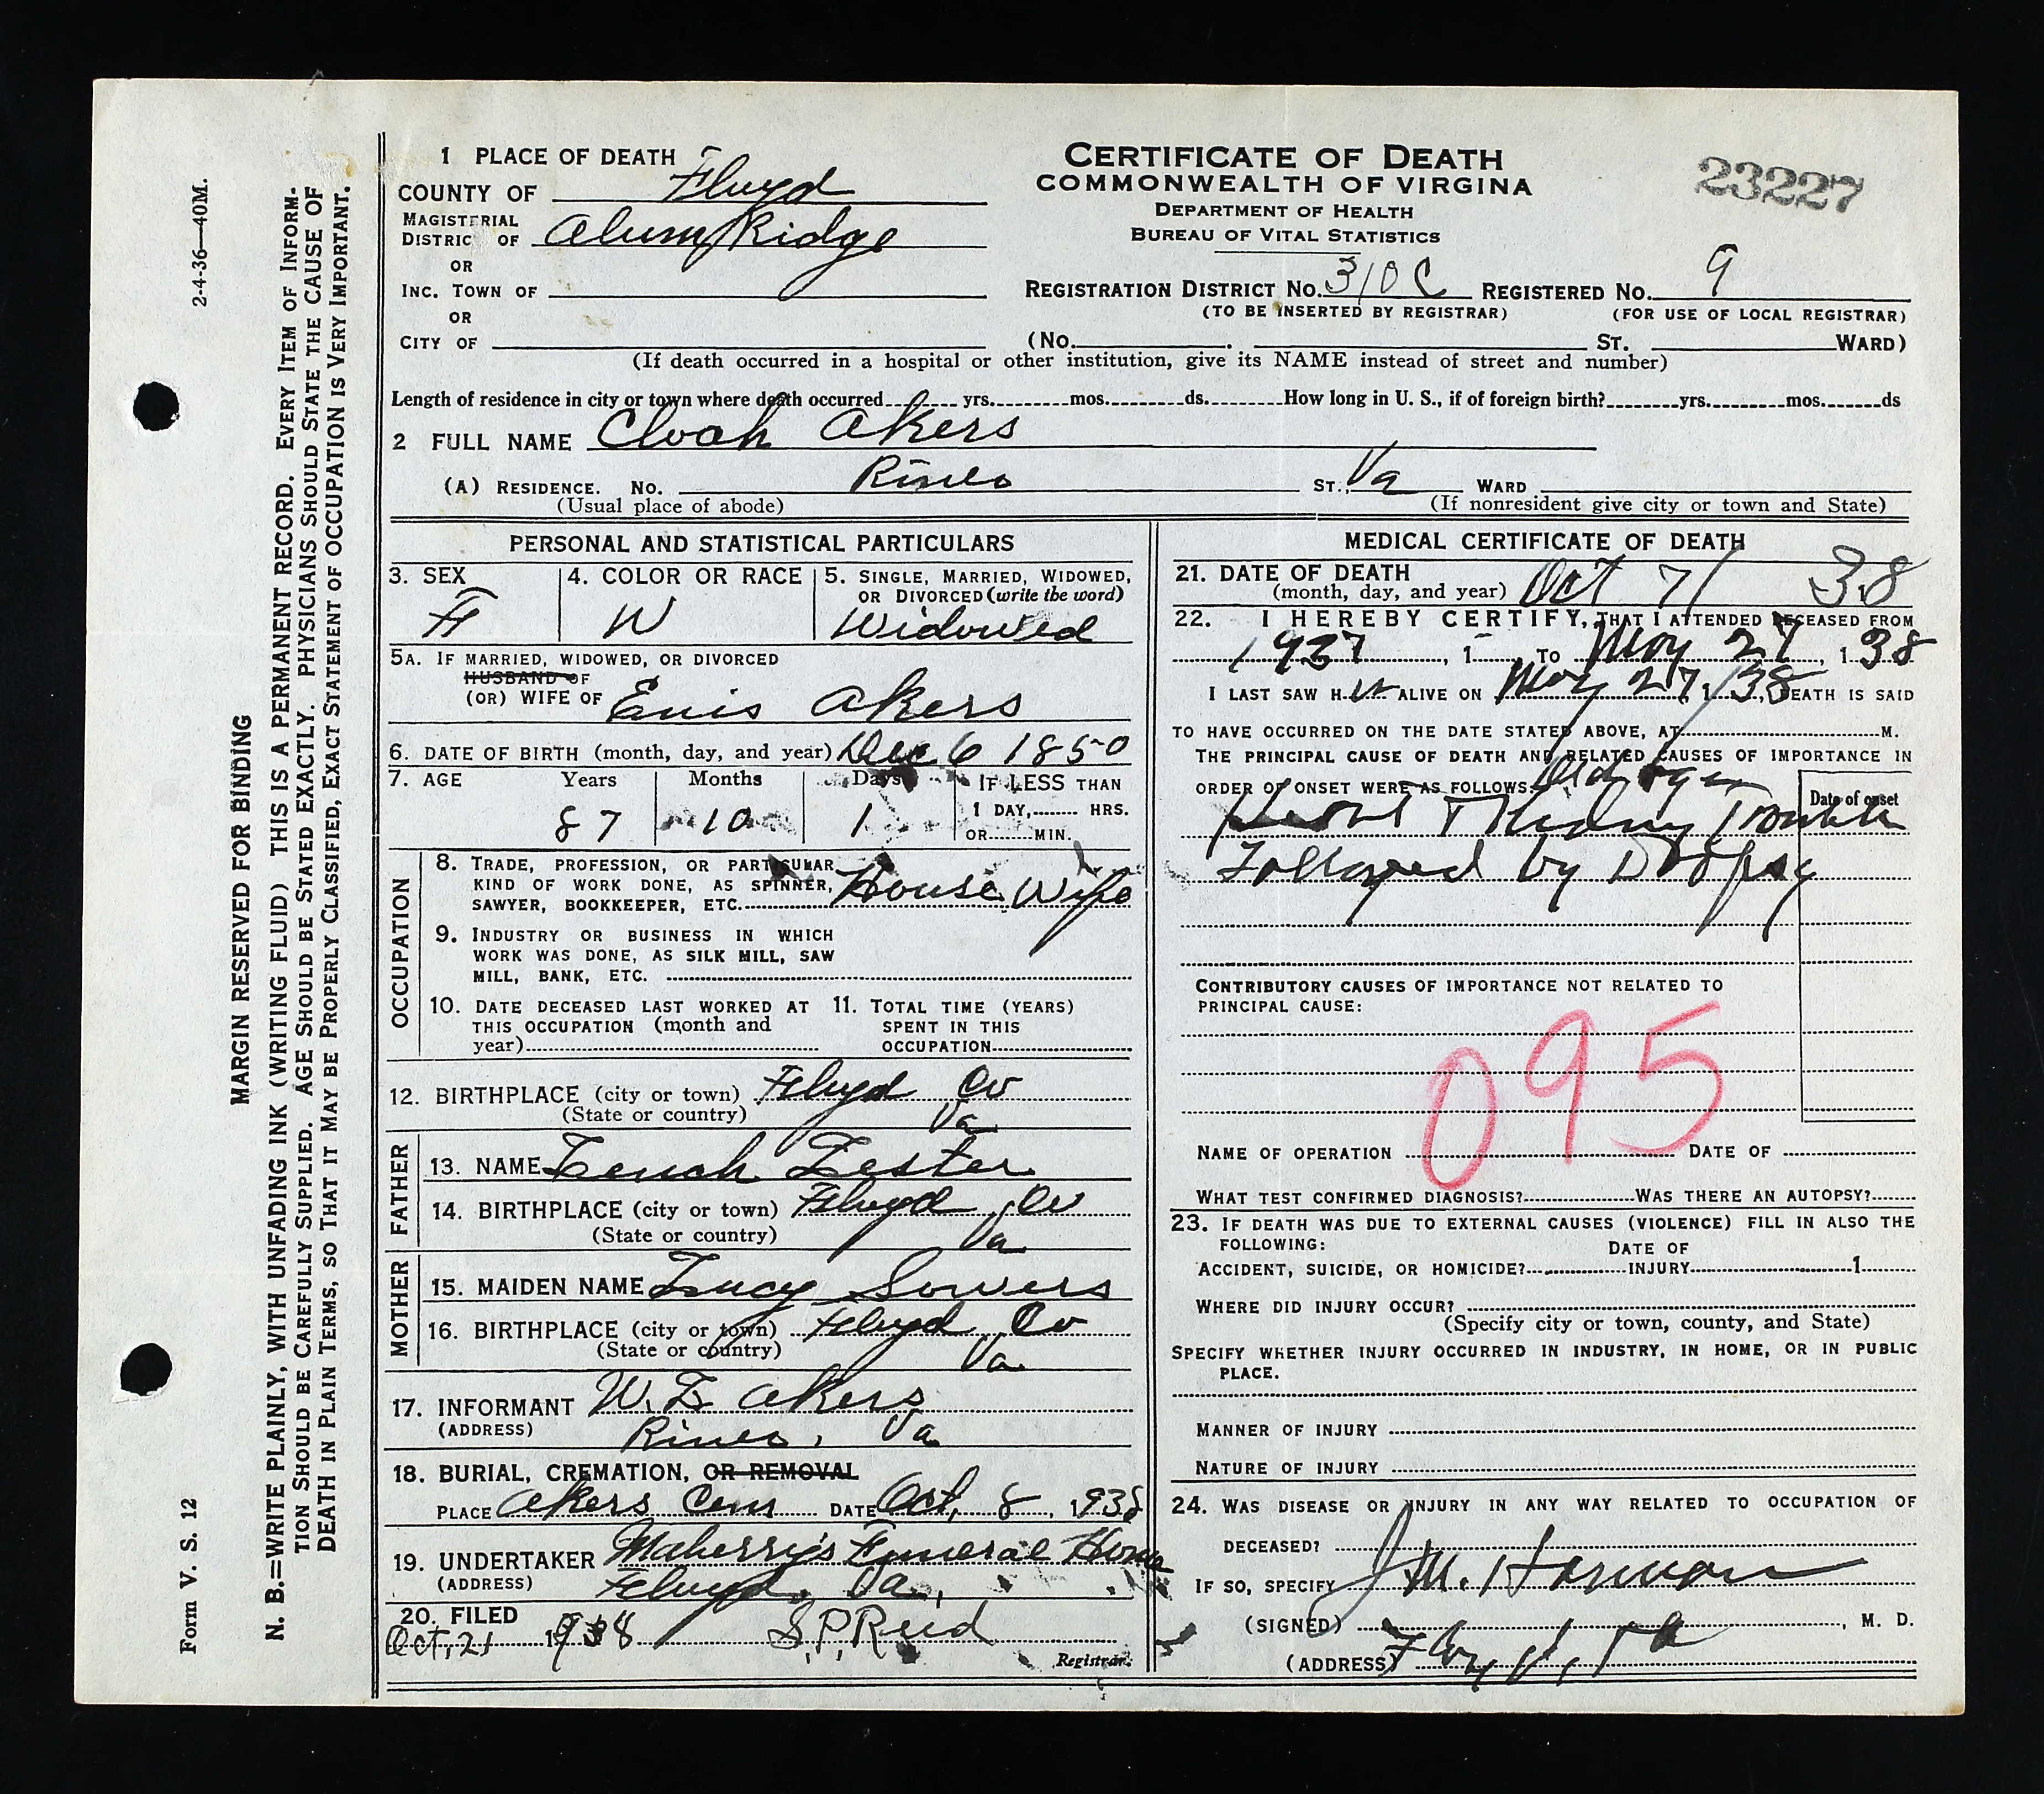 2-4-36—40M.
MARGIN RESERVED FOR BINDING
N. B.=WRITE PLAINLY, WITH UNFADING INK (WRITING FLUID) THIS IS A PERMANENT RECORD. EVERY ITEM OF INFORM-
TION SHOULD BE CAREFULLY SUPPLIED. AGE SHOULD BE STATED EXACTLY. PHYSICIANS SHOULD STATE THE CAUSE OF
DEATH IN PLAIN TERMS, SO THAT IT MAY BE PROPERLY CLASSIFIED, EXACT STATEMENT OF OCCUPATION IS VERY IMPORTANT.
Form V. S. 12
CERTIFICATE OF DEATH
COMMONWEALTH OF VIRGINA
DEPARTMENT OF HEALTH
BUREAU OF VITAL STATISTICS
23227
1 PLACE OF DEATH
COUNTY OF Floyd
MAGISTERIAL
DISTRICT OF Alum Ridge
OR
INC. TOWN OF
OR
CITY OF
REGISTRATION DISTRICT NO. 310C REGISTERED NO. 9
(TO BE INSERTED BY REGISTRAR) (FOR USE OF LOCAL REGISTRAR)
(No. ST. WARD)
(If death occurred in a hospital or other institution, give its NAME instead of street and number)
Length of residence in city or town where death occurred yrs. mos. ds. How long in U. S., if of foreign birth? yrs. mos. ds
2 FULL NAME Cloah Akers
(A) RESIDENCE. NO. ST., Va WARD
(Usual place of abode) (If nonresident give city or town and State)
PERSONAL AND STATISTICAL PARTICULARS
3. SEX 4. COLOR OR RACE 5. SINGLE, MARRIED, WIDOWED,
OR DIVORCED (write the word)
F W Widowed
5A. IF MARRIED, WIDOWED, OR DIVORCED
HUSBAND OF
(OR) WIFE OF Enis Akers
6. DATE OF BIRTH (month, day, and year) Dec 6 1850
7. AGE Years Months Days IF LESS THAN
1 DAY, HRS.
87 10 1 OR MIN.
OCCUPATION
8. TRADE, PROFESSION, OR PARTICULAR
KIND OF WORK DONE, AS SPINNER,
SAWYER, BOOKKEEPER, ETC. House Wife
9. INDUSTRY OR BUSINESS IN WHICH
WORK WAS DONE, AS SILK MILL, SAW
MILL, BANK, ETC.
10. DATE DECEASED LAST WORKED AT
THIS OCCUPATION (month and
year)
11. TOTAL TIME (YEARS)
SPENT IN THIS
OCCUPATION
12. BIRTHPLACE (city or town) Floyd Co
(State or country) Va
FATHER
13. NAME Lester
14. BIRTHPLACE (city or town) Floyd Co
(State or country) Va
MOTHER
15. MAIDEN NAME Lucy Sowers
16. BIRTHPLACE (city or town) Floyd Co
(State or country) Va
17. INFORMANT Akers
(ADDRESS) Va
18. BURIAL, CREMATION, OR REMOVAL
PLACE Akers Cem DATE Oct, 8, 1938
19. UNDERTAKER Maberry's Funeral Home
(ADDRESS) Floyd, Va,
20. FILED
Oct, 21 1938 S.P. Reed
Registrar.
MEDICAL CERTIFICATE OF DEATH
21. DATE OF DEATH
(month, day, and year) Oct 7/ 38
22. I HEREBY CERTIFY, THAT I ATTENDED DECEASED FROM
1937, 1 TO May 27, 1 38
I LAST SAW H ALIVE ON May 27, /38 DEATH IS SAID
TO HAVE OCCURRED ON THE DATE STATED ABOVE, AT M.
THE PRINCIPAL CAUSE OF DEATH AND RELATED CAUSES OF IMPORTANCE IN
ORDER OF ONSET WERE AS FOLLOWS: Old age
Date of onset
Heart & Kidney Trouble
Followed by Dropsy
CONTRIBUTORY CAUSES OF IMPORTANCE NOT RELATED TO
PRINCIPAL CAUSE:
095
NAME OF OPERATION DATE OF
WHAT TEST CONFIRMED DIAGNOSIS? WAS THERE AN AUTOPSY?
23. IF DEATH WAS DUE TO EXTERNAL CAUSES (VIOLENCE) FILL IN ALSO THE
FOLLOWING:
DATE OF
ACCIDENT, SUICIDE, OR HOMICIDE? INJURY 1
WHERE DID INJURY OCCUR?
(Specify city or town, county, and State)
SPECIFY WHETHER INJURY OCCURRED IN INDUSTRY, IN HOME, OR IN PUBLIC
PLACE.
MANNER OF INJURY
NATURE OF INJURY
24. WAS DISEASE OR INJURY IN ANY WAY RELATED TO OCCUPATION OF
DECEASED?
IF SO, SPECIFY
(SIGNED) J M. Harman, M. D.
(ADDRESS) Floyd, Va